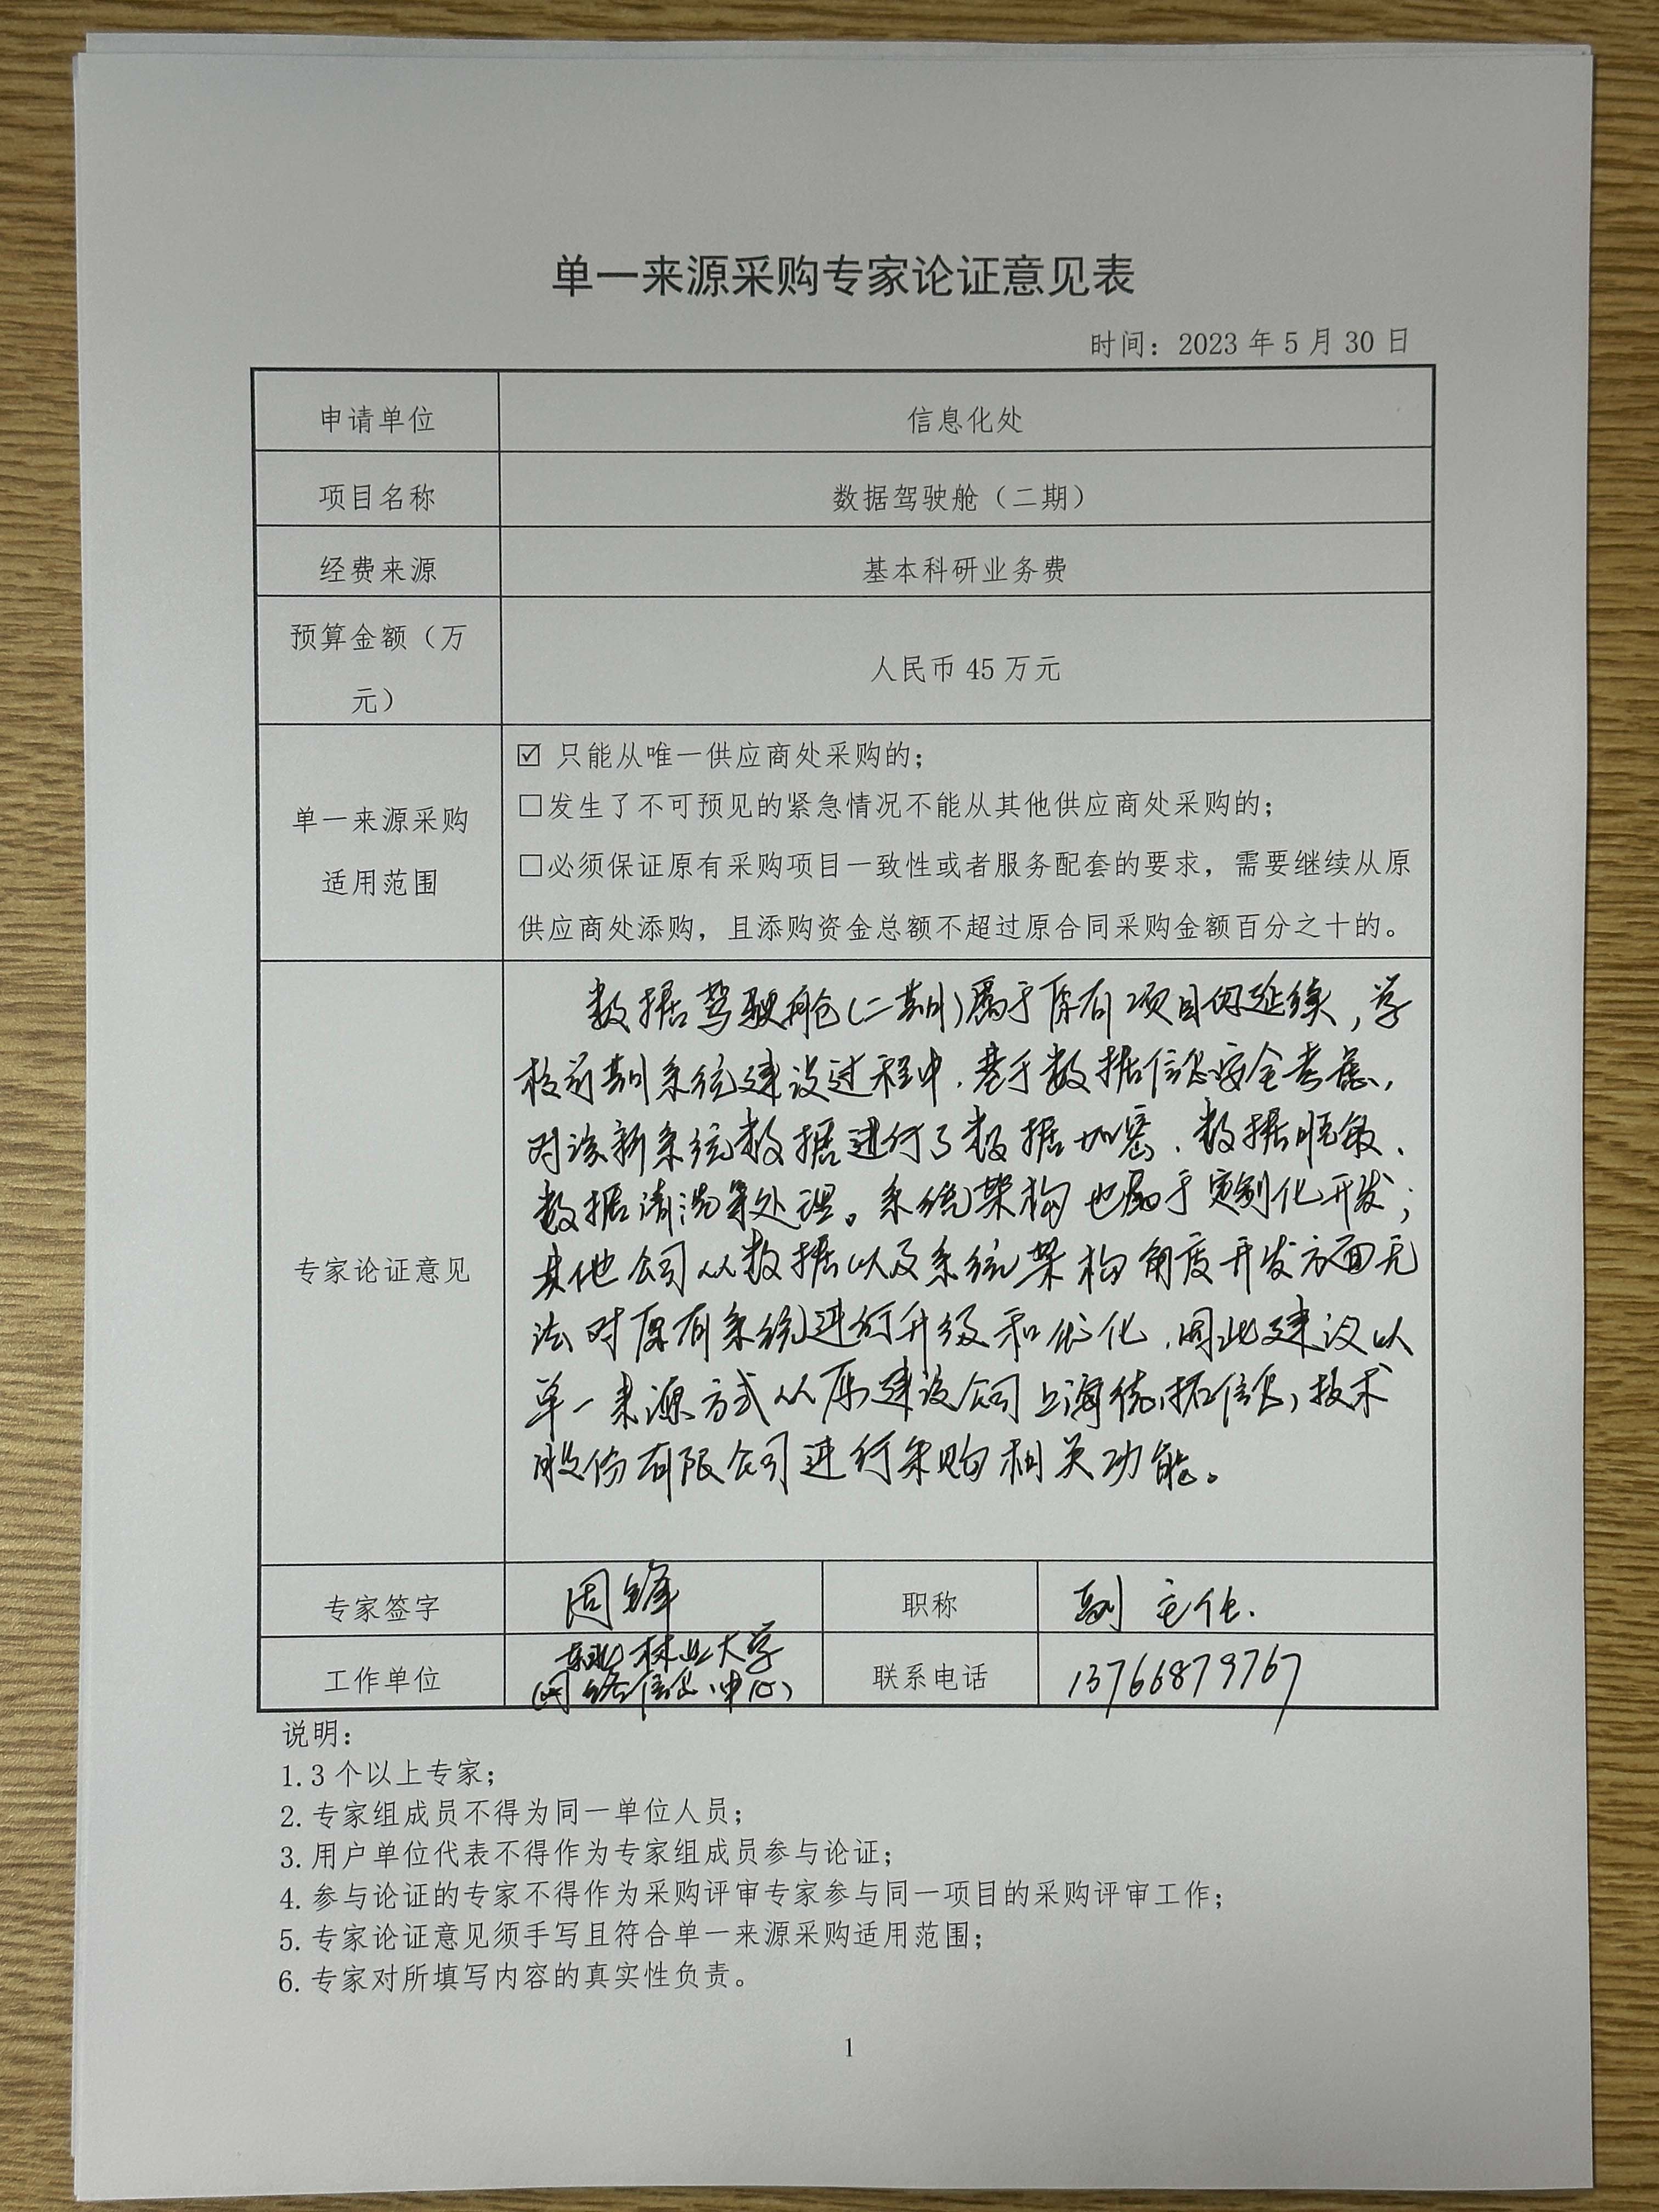 单一来源采购专家论证意见表
时间：2023 年 5 月 30 日
申请单位
信息化处
项目名称
数据驾驶舱（二期）
经费来源
基本科研业务费
预算金额（万
元）
人民币 45 万元
单一来源采购
适用范围
☑ 只能从唯一供应商处采购的；
□发生了不可预见的紧急情况不能从其他供应商处采购的；
□必须保证原有采购项目一致性或者服务配套的要求，需要继续从原
供应商处添购，且添购资金总额不超过原合同采购金额百分之十的。
专家论证意见
数据驾驶舱(二期)属于原有项目的延续，学
校前期系统建设过程中，基于数据信息安全考虑，
对该新系统数据进行了数据加密、数据脱敏、
数据清洗等处理。系统架构也属于定制化开发；
其他公司从数据以及系统架构角度开发方面无
法对原有系统进行升级和优化，因此建议以
单一来源方式从原建设公司上海信息技术
股份有限公司进行采购相关功能。
专家签字
周锋
职称
副主任.
工作单位
东北林业大学
网络信息中心
联系电话
13766879767
说明：
1.3 个以上专家；
2. 专家组成员不得为同一单位人员；
3. 用户单位代表不得作为专家组成员参与论证；
4. 参与论证的专家不得作为采购评审专家参与同一项目的采购评审工作；
5. 专家论证意见须手写且符合单一来源采购适用范围；
6. 专家对所填写内容的真实性负责。
1